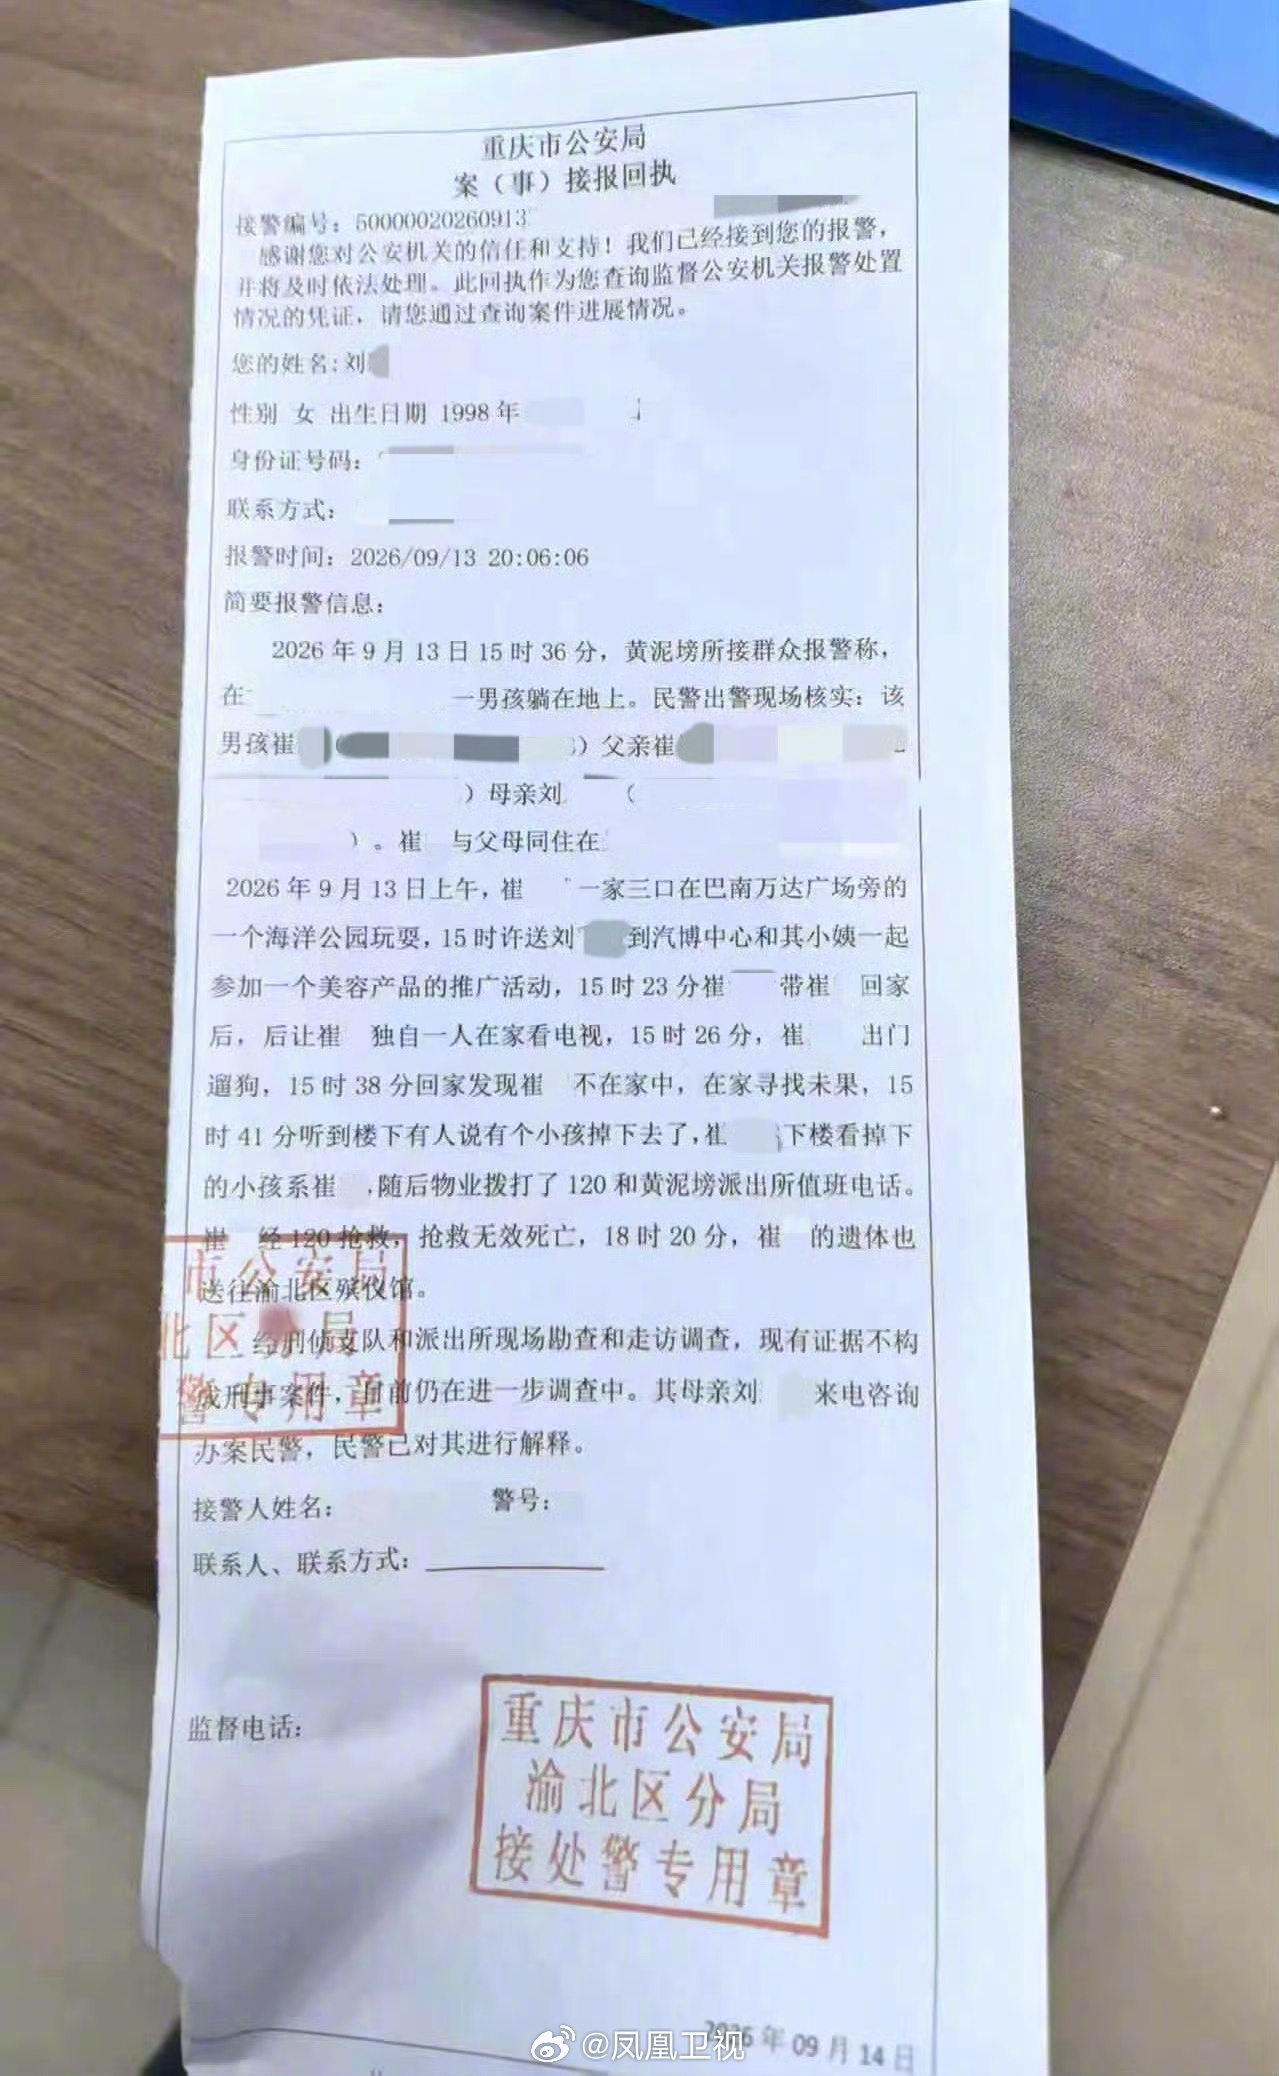 重庆市公安局
案（事）接报回执
接警编号：50000020260913
感谢您对公安机关的信任和支持！我们已经接到您的报警，
并将及时依法处理。此回执作为您查询监督公安机关报警处置
情况的凭证，请您通过查询案件进展情况。
您的姓名：刘
性别 女 出生日期 1998年
身份证号码：
联系方式：
报警时间：2026/09/13 20:06:06
简要报警信息：
2026年9月13日15时36分，黄泥塝所接群众报警称，
在 一男孩躺在地上。民警出警现场核实：该
男孩崔 ）父亲崔
）母亲刘 （
）。崔 与父母同住在
2026年9月13日上午，崔 一家三口在巴南万达广场旁的
一个海洋公园玩耍，15时许送刘 到汽博中心和其小姨一起
参加一个美容产品的推广活动，15时23分崔 带崔 回家
后，后让崔 独自一人在家看电视，15时26分，崔 出门
遛狗，15时38分回家发现崔 不在家中，在家寻找未果，15
时41分听到楼下有人说有个小孩掉下去了，崔 下楼看掉下
的小孩系崔 ，随后物业拨打了120和黄泥塝派出所值班电话。
崔 经120抢救，抢救无效死亡，18时20分，崔 的遗体也
送往渝北区殡仪馆。
经刑侦支队和派出所现场勘查和走访调查，现有证据不构
成刑事案件，目前仍在进一步调查中。其母亲刘 来电咨询
办案民警，民警已对其进行解释。
市公安局
北区分局
警专用章
接警人姓名： 警号：
联系人、联系方式：
监督电话：
重庆市公安局
渝北区分局
接处警专用章
2026年09月14日
@凤凰卫视